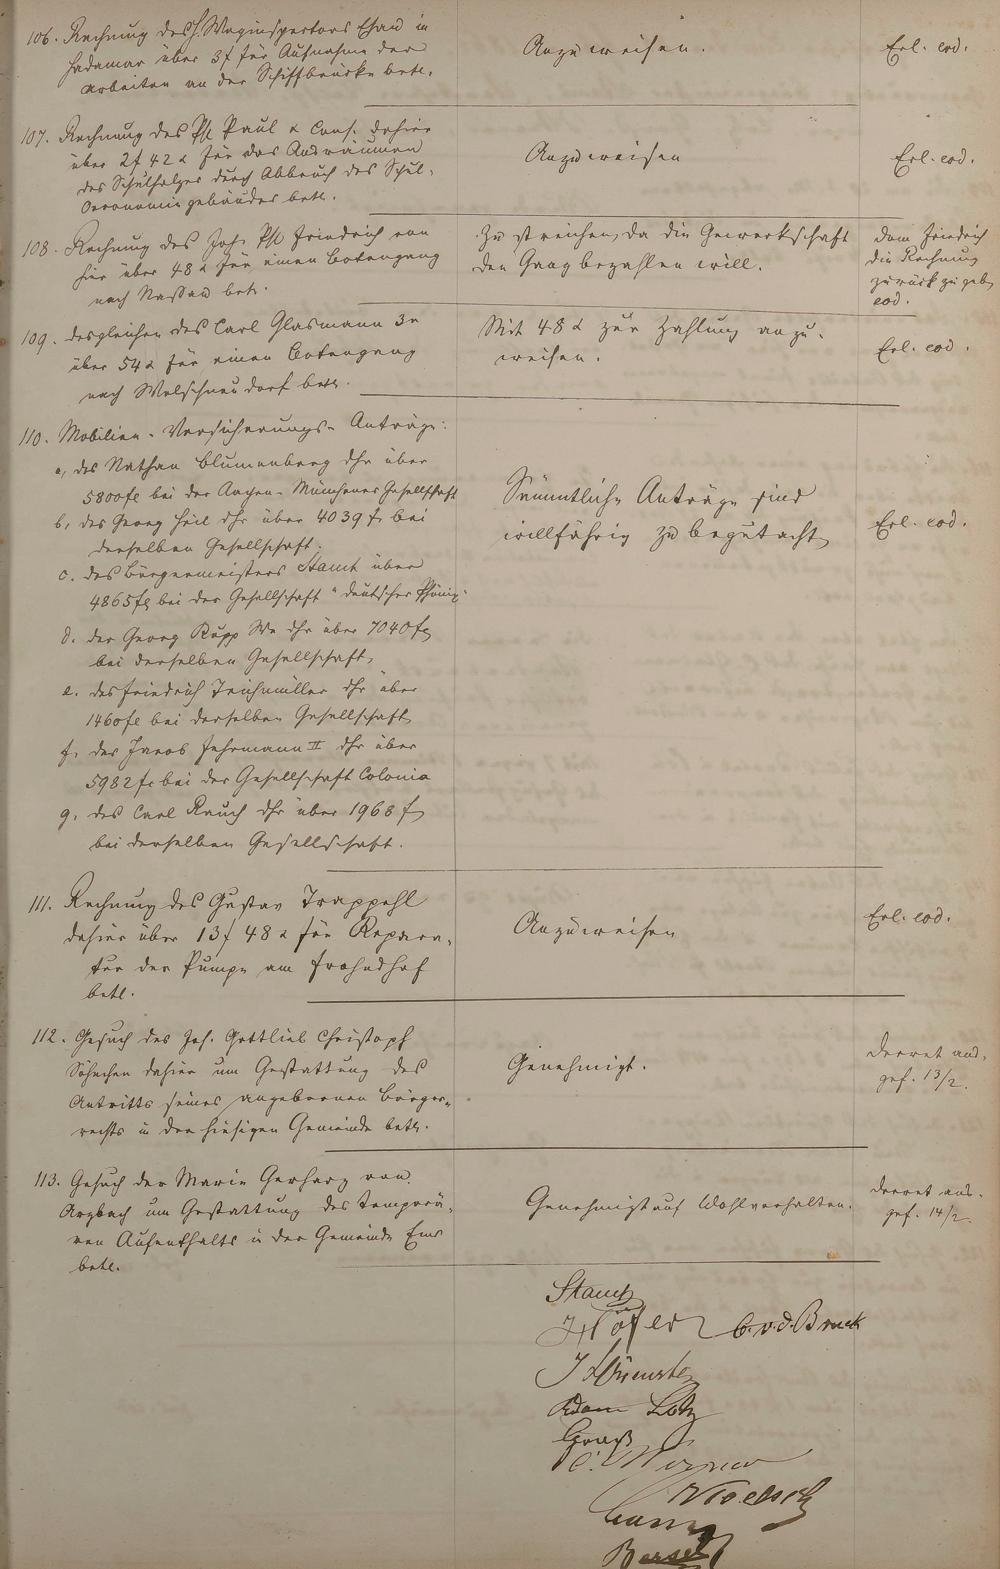 106. Rechnung des H. Weginspectors Esau in
Hadamar über 3f für Aufnahme der
Arbeiten an der Schiffbrücke betr.
Anzuweisen.
Erl. eod.
107. Rechnung des Ph. Paul & Cons. dahier
über 2f 42x für das Ausräumen
des Schulholzes durch Abbruch des Schul-
Oeconomiegebäudes betr.
Anzuweisen
Erl. eod.
108. Rechnung des Joh. Ph. Friedrich von
hier über 48x für einen Botengang
nach Nassau betr.
Zu streichen, da die Gewerkschaft
den Gang bezahlen will.
Dem Friedrich
die Rechnung
zurück zu geben
eod.
109. desgleichen des Carl Glasmann 3r
über 54x für einen Botengang
nach Welschneudorf betr.
Mit 48x zur Zahlung anzu-
weisen.
Erl. eod.
110. Mobilien-Versicherungs-Anträge:
a, des Nathan Blumenberg dhr über
5800fl bei der Aachen-Münchener Gesellschaft
b, des Georg Heil dhr über 4039 fl bei
derselben Gesellschaft.
c. des Bürgermeisters Stamt über
4865fl bei der Gesellschaft "deutscher Phönix"
d. der Georg Rupp We dhr über 7040fl
bei derselben Gesellschaft,
e. des Friedrich Teichmüller dhr über
1460fl bei derselben Gesellschaft
f, des Jacob Fuhrmann II dhr über
5982fl bei der Gesellschaft Colonia
g, des Carl Rauch dhr über 1968 fl
bei derselben Gesellschaft.
Sämmtliche Anträge sind
willfährig zu begutachten
Erl. eod.
111. Rechnung des Gustav Trappehl
dahier über 13f 48x für Repara-
tur der Pumpe am Frohndhof
betr.
Anzuweisen
Erl. eod.
112. Gesuch des Joh. Gottlieb Christoph
Söhnchen dahier um Gestattung des
Antritts seines angebornen Bürger-
rechts in der hiesigen Gemeinde betr.
Genehmigt.
Decret aus-
gef. 13/2.
113. Gesuch der Marie Gerharz von
Arzbach um Gestattung des temporä-
ren Aufenthalts in der Gemeinde Ems
betr.
Genehmigt auf Wohlverhalten.
Decret aus-
gef. 14/2.
Stamt
Höfer C. v. d. Bruck
Adam Lotz